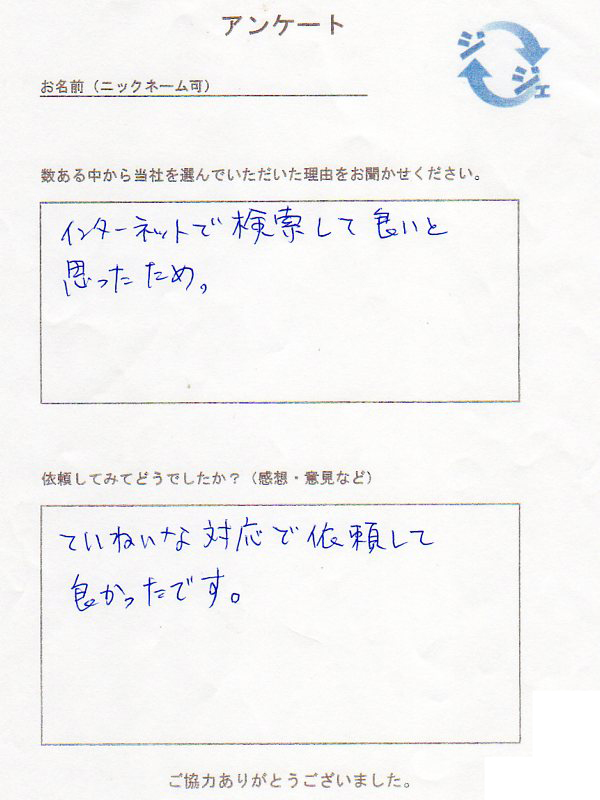 アンケート
ジジェ
お名前（ニックネーム可）
数ある中から当社を選んでいただいた理由をお聞かせください。
インターネットで検索して良いと
思ったため。
依頼してみてどうでしたか？（感想・意見など）
ていねいな対応で依頼して
良かったです。
ご協力ありがとうございました。